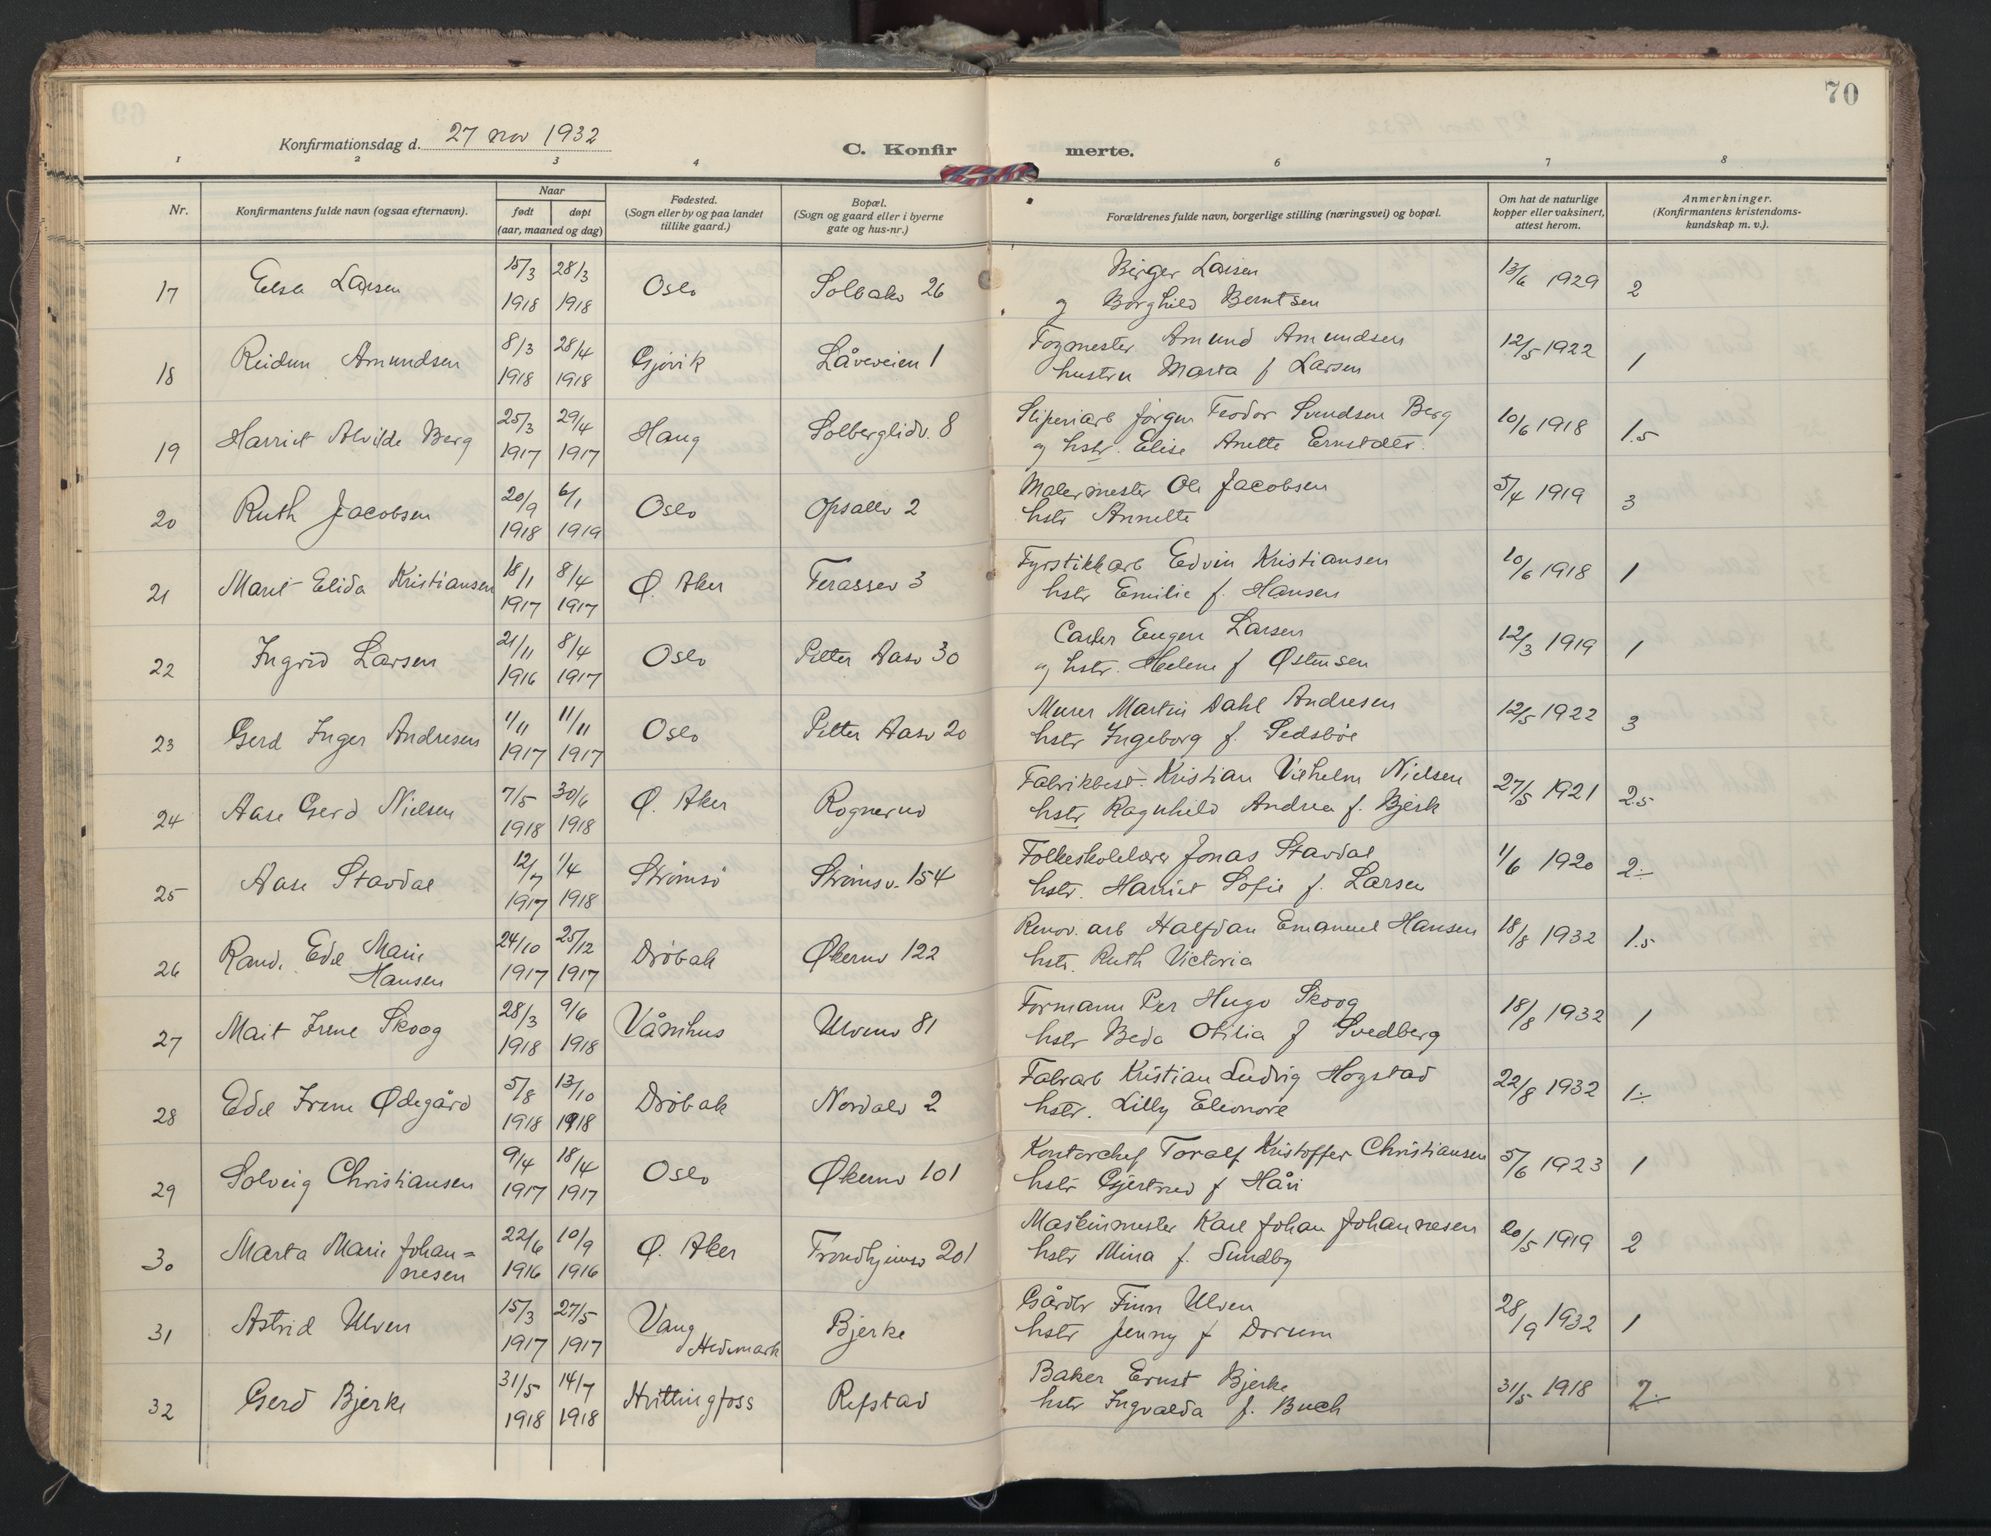 70
Konfirmationsdag d. 27 nov 1932
C. Konfir merte.
1 2 3 4 6 7 8
Nr. Konfirmantens fulde navn (ogsaa efternavn). Naar født døpt (aar, maaned og dag) Fødested. (Sogn eller by og paa landet tillike gaard.) Bopæl. (Sogn og gaard eller i byerne gate og hus-nr.) Forældrenes fulde navn, borgerlige stilling (næringsvei) og bopæl. Om hat de naturlige kopper eller vaksinert, attest herom. Anmerkninger. (Konfirmantens kristendoms-kundskap m. v.).
17 Else Larsen 15/3 1918 28/3 1918 Oslo Solbakv 26 Birger Larsen 13/6 1929 2
og Borghild Berntsen
18 Reidun Amundsen 8/3 1918 28/4 1918 Gjøvik Låveveien 1 Togmester Amund Amundsen 12/5 1922 1
hustru Marta f Larsen
19 Harriet Alvilde Berg 25/3 1917 29/4 1917 Haug Solberglidv. 8 Sliperiarb Jørgen Teodor Svendsen Berg 10/6 1918 1.5
og hstr. Elise Anette Ernstdtr.
20 Ruth Jacobsen 20/9 1918 6/1 1919 Oslo Opsallv 2 Malermester Ole Jacobsen 5/4 1919 3
hstr Annette
21 Marit Elida Kristiansen 18/1 1917 8/4 1917 Ø. Aker Terassev 3 Fyrstikkarb Edvin Kristiansen 10/6 1918 1
hstr Emilie f. Hansen
22 Ingrid Larsen 21/11 1916 8/4 1917 Oslo Petter Aasv 30 Carler Eugen Larsen 12/3 1919 1
og hstr. Helene f Østensen
23 Gerd Inger Andresen 1/11 1917 11/11 1917 Oslo Petter Aasv 20 Murer Martin Dahl Andresen 12/5 1922 3
hstr Ingeborg f. Sedsbøe
24 Aase Gerd Nielsen 7/5 1918 30/6 1918 Ø. Aker Rognerud Fabrikbest. Kristian Vilhelm Nielsen 27/5 1921 2.5
hstr Ragnhild Andrea f. Bjerk
25 Aase Stavdal 12/7 1917 1/4 1918 Strømsø Strømsv. 154 Folkeskolelærer Jonas Stavdal 1/6 1920 2÷
hstr. Harriet Sofie f. Larsen
26 Randi Edel Marie 24/10 1917 25/12 1917 Drøbak Økernv 122 Renov. arb Halfdan Emanuel Hansen 18/8 1932 1.5
Hansen hstr. Ruth Victoria
27 Mait Irene Skoog 28/3 1918 9/6 1918 Våmhus Ulvenv 81 Formann Per Hugo Skoog 18/8 1932 1
hstr Beda Otilia f Svedberg
28 Edel Irene Ødegård 5/8 1918 13/10 1918 Drøbak Nordalv 2 Fabrarb Kristian Ludvig Hogstad 22/8 1932 1÷
hstr. Lilly Elionore
29 Solveig Christiansen 9/4 1917 18/4 1917 Oslo Økernv 101 Kontorchef Toralf Kristoffer Christiansen 5/6 1923 1
hstr Gjertrud f Håri
30 Marta Marie Johan= 22/6 1916 10/9 1916 Ø. Aker Trondhjemsv 201 Maskinmester Karl Johan Johannesen 20/5 1919 2
nesen hstr Mina f. Sundby
31 Astrid Ulven 15/3 1917 27/5 1917 Vang Hedemark Bjerke Gårdbr Finn Ulven 28/9 1932 1
hstr Jenny f Dorum
32 Gerd Bjerke 31/5 1918 14/7 1918 Hvittingfoss Refstad Baker Ernst Bjerke 31/5 1918 2÷
hstr Ingvalda f. Buch